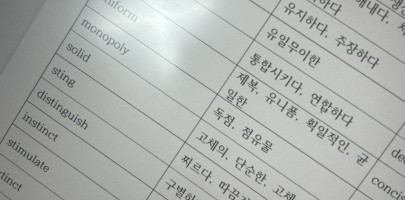 유지하다, 주장하다
유일무이한
통합시키다, 연합하다
niform 제복, 유니폼, 획일적인, 균
일한
monopoly 독점, 점유물
solid 고체의, 단순한, 고체
sting 찌르다, 따끔
distinguish 구별하
instinct
stimulate
tinct
de
concis